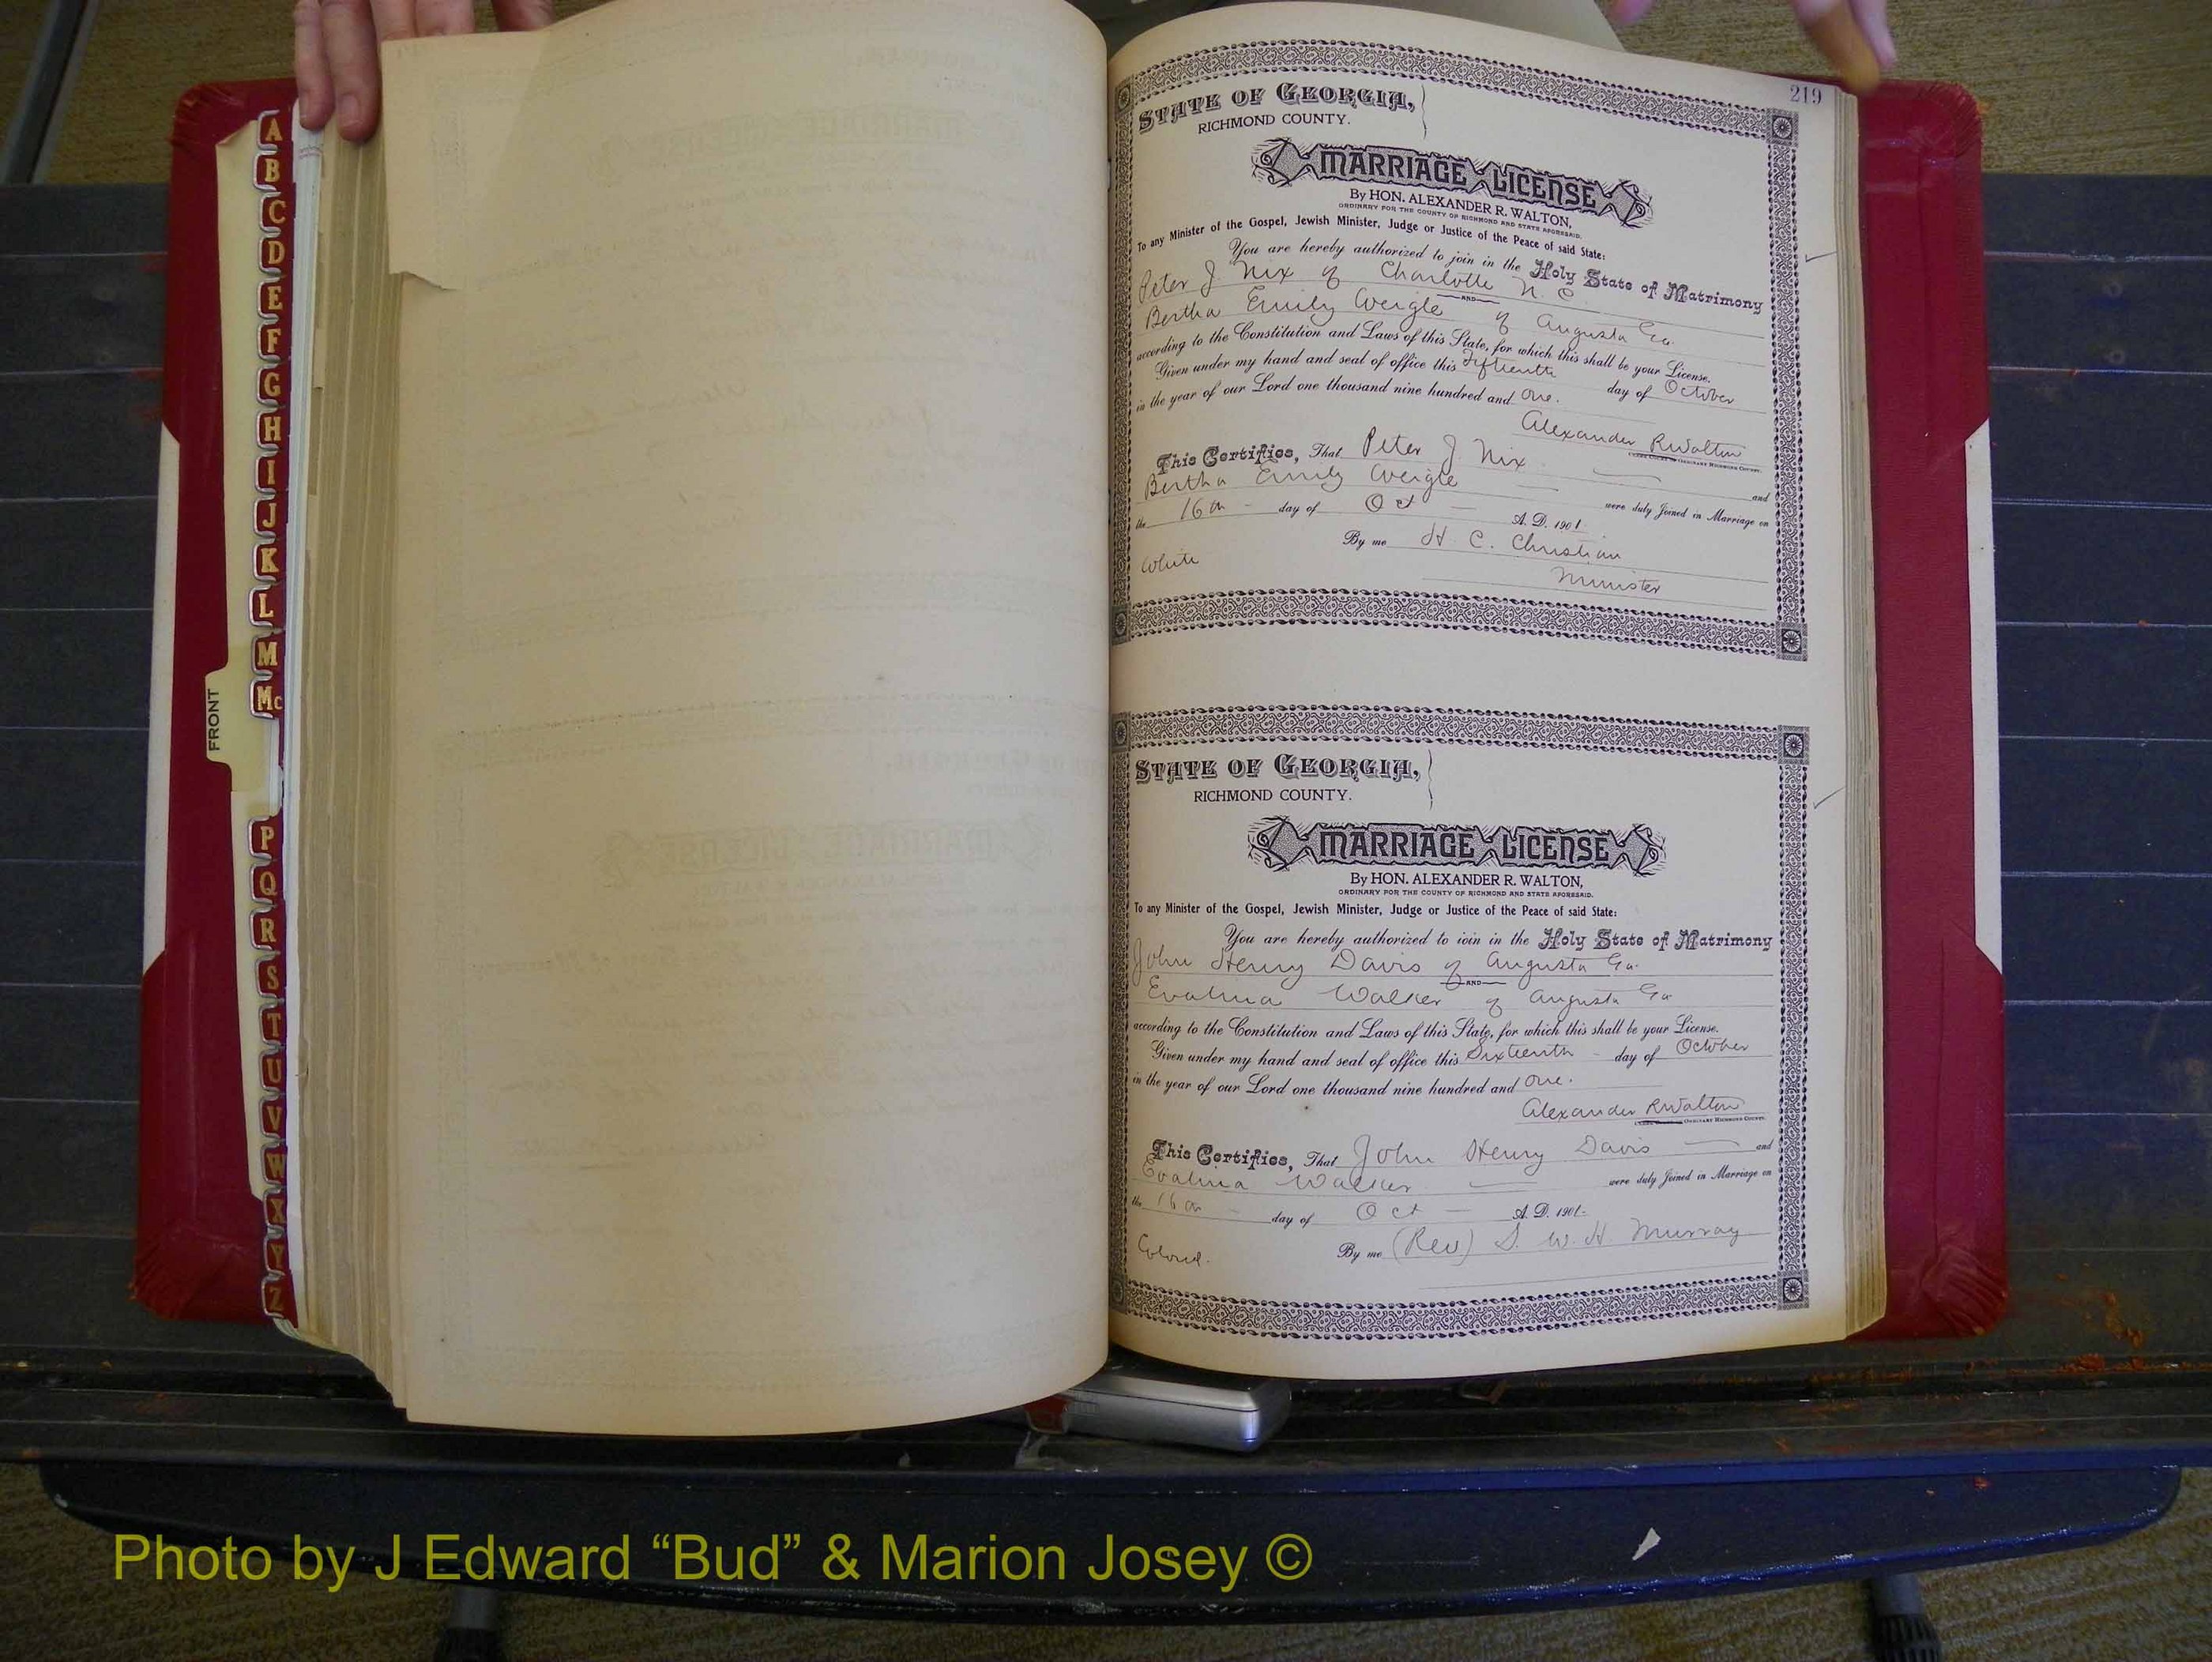 A
B
C
D
E
F
G
H
I
J
K
L
M
Mc
FRONT
P
Q
R
S
T
U
V
W
X
Y
Z
219
STATE OF GEORGIA,
RICHMOND COUNTY.
MARRIAGE LICENSE
By HON. ALEXANDER R. WALTON,
ORDINARY FOR THE COUNTY OF RICHMOND AND STATE AFORESAID.
To any Minister of the Gospel, Jewish Minister, Judge or Justice of the Peace of said State:
You are hereby authorized to join in the Holy State of Matrimony
Peter J. Nix of Charlotte N. C.
AND
Bertha Emily Weigle of Augusta Ga.
according to the Constitution and Laws of this State, for which this shall be your License.
Given under my hand and seal of office this Fifteenth day of October
in the year of our Lord one thousand nine hundred and One.
Alexander R Walton
ORDINARY RICHMOND COUNTY.
This Certifies, That Peter J. Nix and
Bertha Emily Weigle were duly Joined in Marriage on
the 16th day of Oct A. D. 1901
By me H. C. Christian
White
Minister
STATE OF GEORGIA,
RICHMOND COUNTY.
MARRIAGE LICENSE
By HON. ALEXANDER R. WALTON,
ORDINARY FOR THE COUNTY OF RICHMOND AND STATE AFORESAID.
To any Minister of the Gospel, Jewish Minister, Judge or Justice of the Peace of said State:
You are hereby authorized to join in the Holy State of Matrimony
John Henry Davis of Augusta Ga.
AND
Evalina Walker of Augusta Ga
according to the Constitution and Laws of this State, for which this shall be your License.
Given under my hand and seal of office this Sixteenth day of October
in the year of our Lord one thousand nine hundred and One.
Alexander R Walton
ORDINARY RICHMOND COUNTY.
This Certifies, That John Henry Davis and
Evalina Walker were duly Joined in Marriage on
the 16th day of Oct A. D. 1901
By me (Rev) S. W. H. Murray
Colored.
Photo by J Edward “Bud” & Marion Josey ©